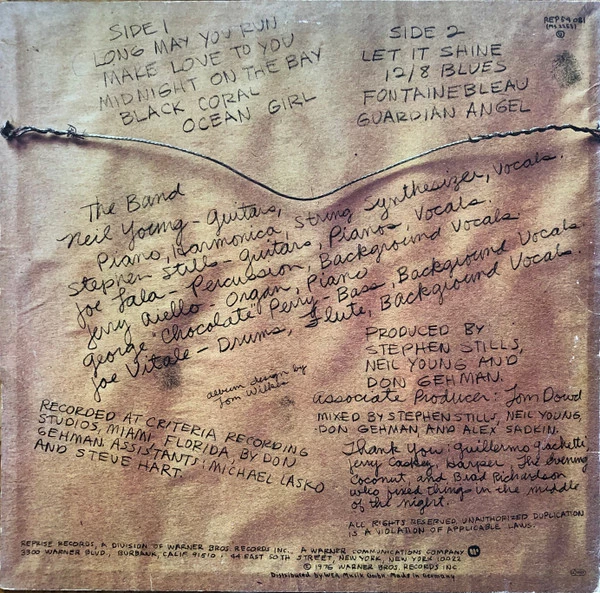 SIDE 1
LONG MAY YOU RUN
MAKE LOVE TO YOU
MIDNIGHT ON THE BAY
BLACK CORAL
OCEAN GIRL
SIDE 2
LET IT SHINE
12/8 BLUES
FONTAINEBLEAU
GUARDIAN ANGEL
REP 54 081
(MS 2253)
The Band
Neil Young - Guitars,
Piano, Harmonica, String Synthesizer, Vocals.
Stephen Stills - Guitars, Pianos, Vocals.
Joe Lala - Percussion, Background Vocals.
Jerry Aiello - Organ, Piano
George "Chocolate" Perry - Bass, Background Vocals
Joe Vitale - Drums, Flute, Background Vocals.
album design by
Tom Wilkes
RECORDED AT CRITERIA RECORDING
STUDIOS, MIAMI FLORIDA, BY DON
GEHMAN. ASSISTANTS: MICHAEL LASKO
AND STEVE HART.
PRODUCED BY
STEPHEN STILLS,
NEIL YOUNG AND
DON GEHMAN.
associate Producer: Tom Dowd
MIXED BY STEPHEN STILLS, NEIL YOUNG,
DON GEHMAN AND ALEX SADKIN.
Thank You: Guillermo Giachetti
Jerry Caskey, Harper, The Evening
Coconut, and Brad Richardson
who fixed things in the middle
of the night.
ALL RIGHTS RESERVED. UNAUTHORIZED DUPLICATION
IS A VIOLATION OF APPLICABLE LAWS.
REPRISE RECORDS, A DIVISION OF WARNER BROS. RECORDS INC., A WARNER COMMUNICATIONS COMPANY
3300 WARNER BLVD., BURBANK, CALIF. 91510 · 44 EAST 50TH STREET, NEW YORK, NEW YORK 10022
© 1976 WARNER BROS. RECORDS INC.
Distributed by WEA Musik GmbH · Made in Germany